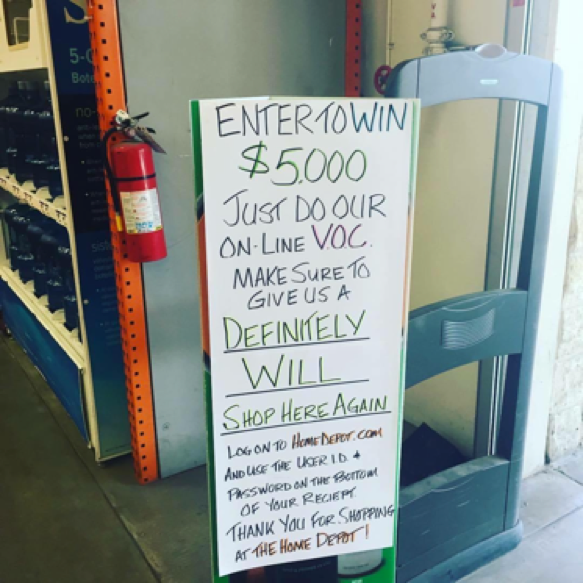 5-G
Bott
no-
ENTER TO WIN
$5.000
JUST DO OUR
ON-LINE V.O.C.
MAKE SURE TO
GIVE US A
DEFINITELY
WILL
SHOP HERE AGAIN
LOG ON TO HOMEDEPOT.COM
AND USE THE USER I.D. &
PASSWORD ON THE BOTTOM
OF YOUR RECIEPT
THANK YOU FOR SHOPPING
AT THE HOME DEPOT!